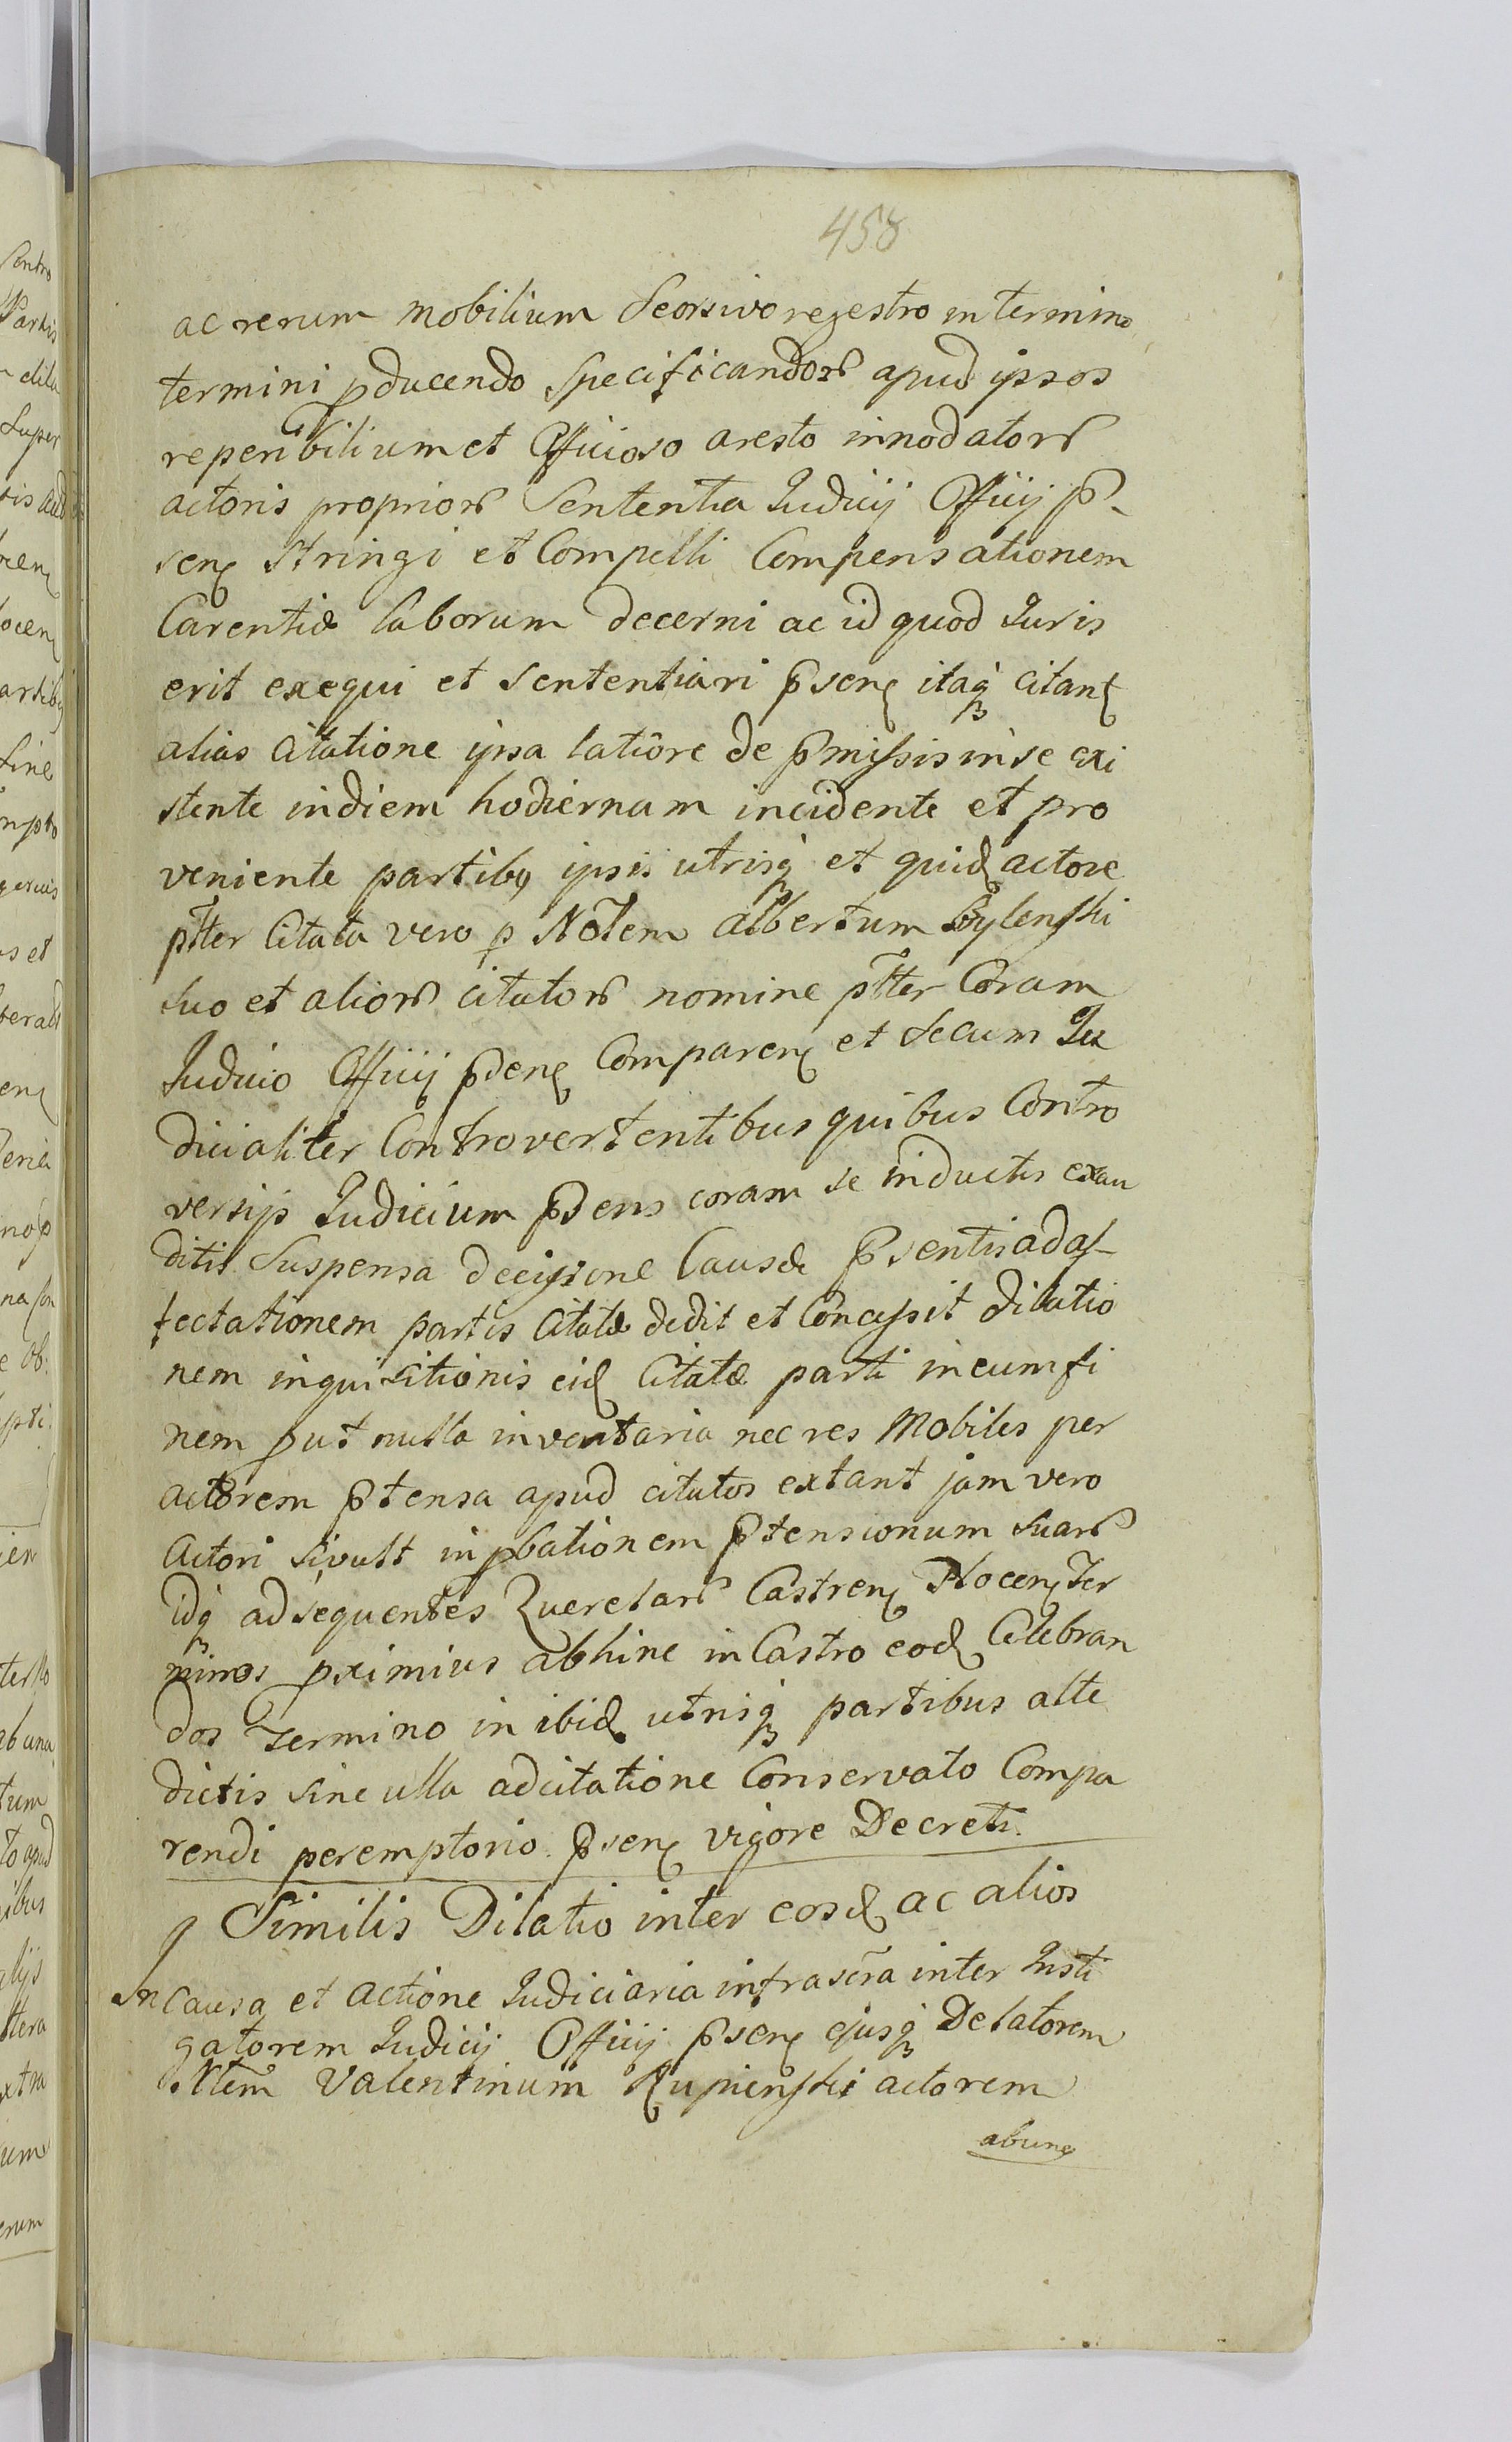 458
ac rerum mobilium Seorsivo regestro in termino
termini pducendo Specificandor apud ipsos
reperibilium et Officioso aresto innodator
actoris proprior Sententia Judicij Officij p-
sen stringi et Compelli Compensationem
Carentiæ laborum decerni ac id quod Juris
erit exequi et Sententiari psen itaq citan
alias Citatione ipsa latiore de pmissis in se exi
stente in diem hodiernam incidente et pro
veniente partibus ipsis utrisq et quid actore
ptter Citata vero p Notem Albertum
suo et alior citator nomine ptter Coram
Judicio Officij pden Comparen et Secum Ju
dicialiter Controvertentibus quibus Contro
versijs Judicium pdens coram se inductis exau
ditis Suspensa decisione Causæ psentis ad af-
fectationem partis Citatæ dedit et Concessit dilatio
nem inquisitionis eid Citatæ parti in eum fi
nem put nulla inventaria nec res Mobiles per
actorem ptensa apud citatos extant jam vero
Actori si vult in pbationem ptensionum suar
idq ad sequentes Querelar Castren Plocen Ter
minos pximius abhinc in Castro eod Celebran
dos Termino in ibid utrisq partibus alte
dictis sine ulla adcitatione Conservato Compa
rendi peremptorio psen vigore Decreti.
Similis Dilatio inter eosd ac alios
In causa et actione Judiciaria infrascra inter Insti
gatorem Judicij Officij psen ejusq Delatorem
Ntem Valentinum Rupienski actorem
abung